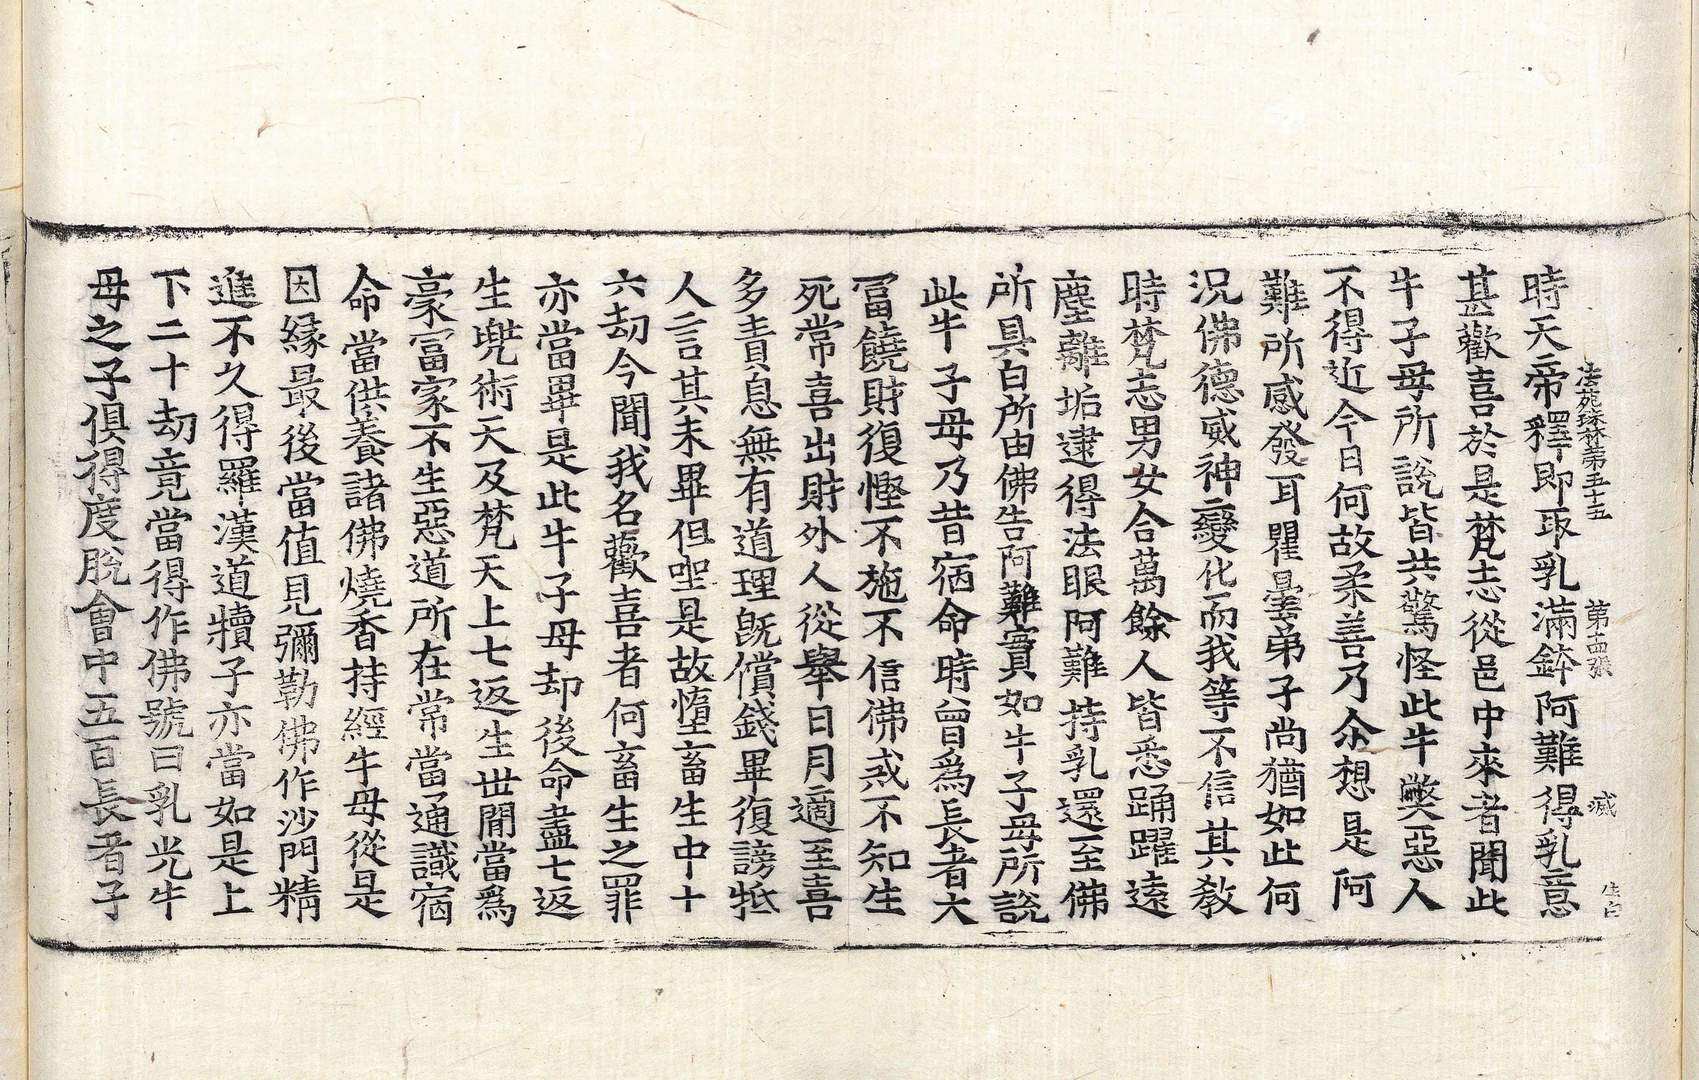 法苑珠林第五十五　第十四張　滅　生白
時天帝釋即取乳滿鉢阿難得乳意
甚歡喜於是梵志從邑中來者聞此
牛子母所說皆共驚怪此牛弊惡人
不得近今日何故柔善乃尒想是阿
難所感發耳瞿曇弟子尚猶如此何
況佛德威神變化而我等不信其敎
時梵志男女合萬餘人皆悉踊躍遠
塵離垢逮得法眼阿難持乳還至佛
所具白所由佛告阿難實如牛子母所說
此牛子母乃昔宿命時曾爲長者大
冨饒財復慳不施不信佛戒不知生
死常喜出財外人從舉日月適至喜
多責息無有道理旣償錢畢復謗牴
人言其未畢但坐是故墮畜生中十
六劫今聞我名歡喜者何畜生之罪
亦當畢是此牛子母却後命盡七返
生兜術天及梵天上七返生世閒當爲
豪冨家不生惡道所在常當通識宿
命當供養諸佛燒香持經牛母從是
因緣最後當值見彌勒佛作沙門精
進不久得羅漢道犢子亦當如是上
下二十劫竟當得作佛號曰乳光牛
母之子俱得度脫會中五百長者子